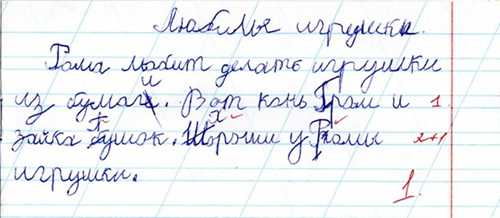 Любимые игрушки.
Рома любит делать игрушки
из бумаги. Вот конь Гром и 1
зайка Пушок. Хороши у Ромы 2+1
игрушки.
1.